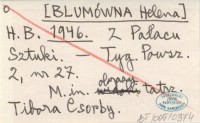 [BLUMÓWNA Helena]
H.B. 1946. Z Pałacu
Sztuki. – Tyg. Powsz.
2, nr 27.
M.in. obrazy tatrz.
Tibora Csorby.